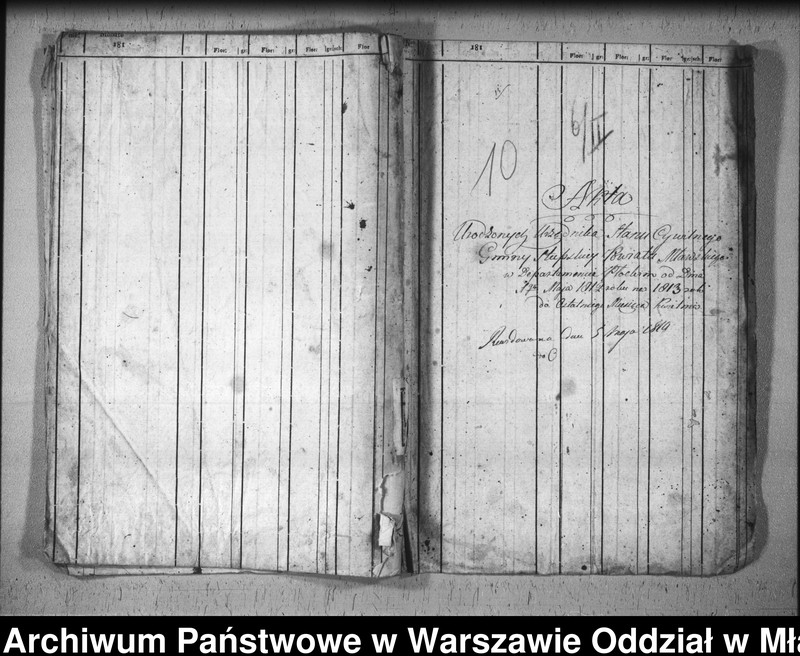 181
Flor: gr: Flor: gr: Flor: gr: Flor
181
Flor: gr: Flor: gr: Flor Flor:
6/II
10
Akta
Urodzonych Urzędnika Stanu Cywilnego
Gminy Powiatu Mławskiego
w Departamencie Płockim od Dnia
Maja 1812 roku na 1813 rok
do Ostatniego Miesiąca Kwietnia
Rewidowana dnia 5 Maja 1819
Archiwum Państwowe w Warszawie Oddział w Mła